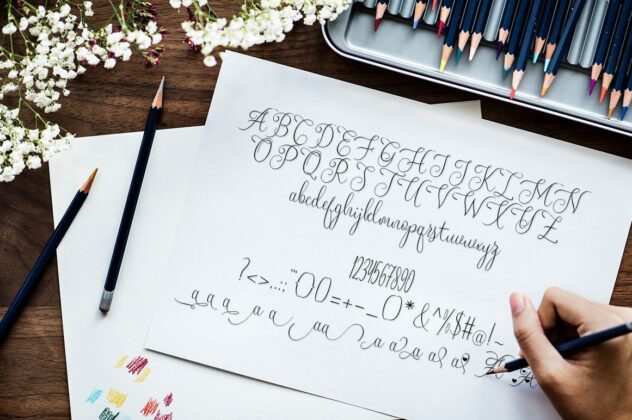 ABCDEFGHIJKLMN
OPQRSTUVWXYZ
abcdefghijklmnopqrstuvwxyz
1234567890
?<>..:;'"()()=+-_()*&^%$#@!~
a a a a aa a a a a a a